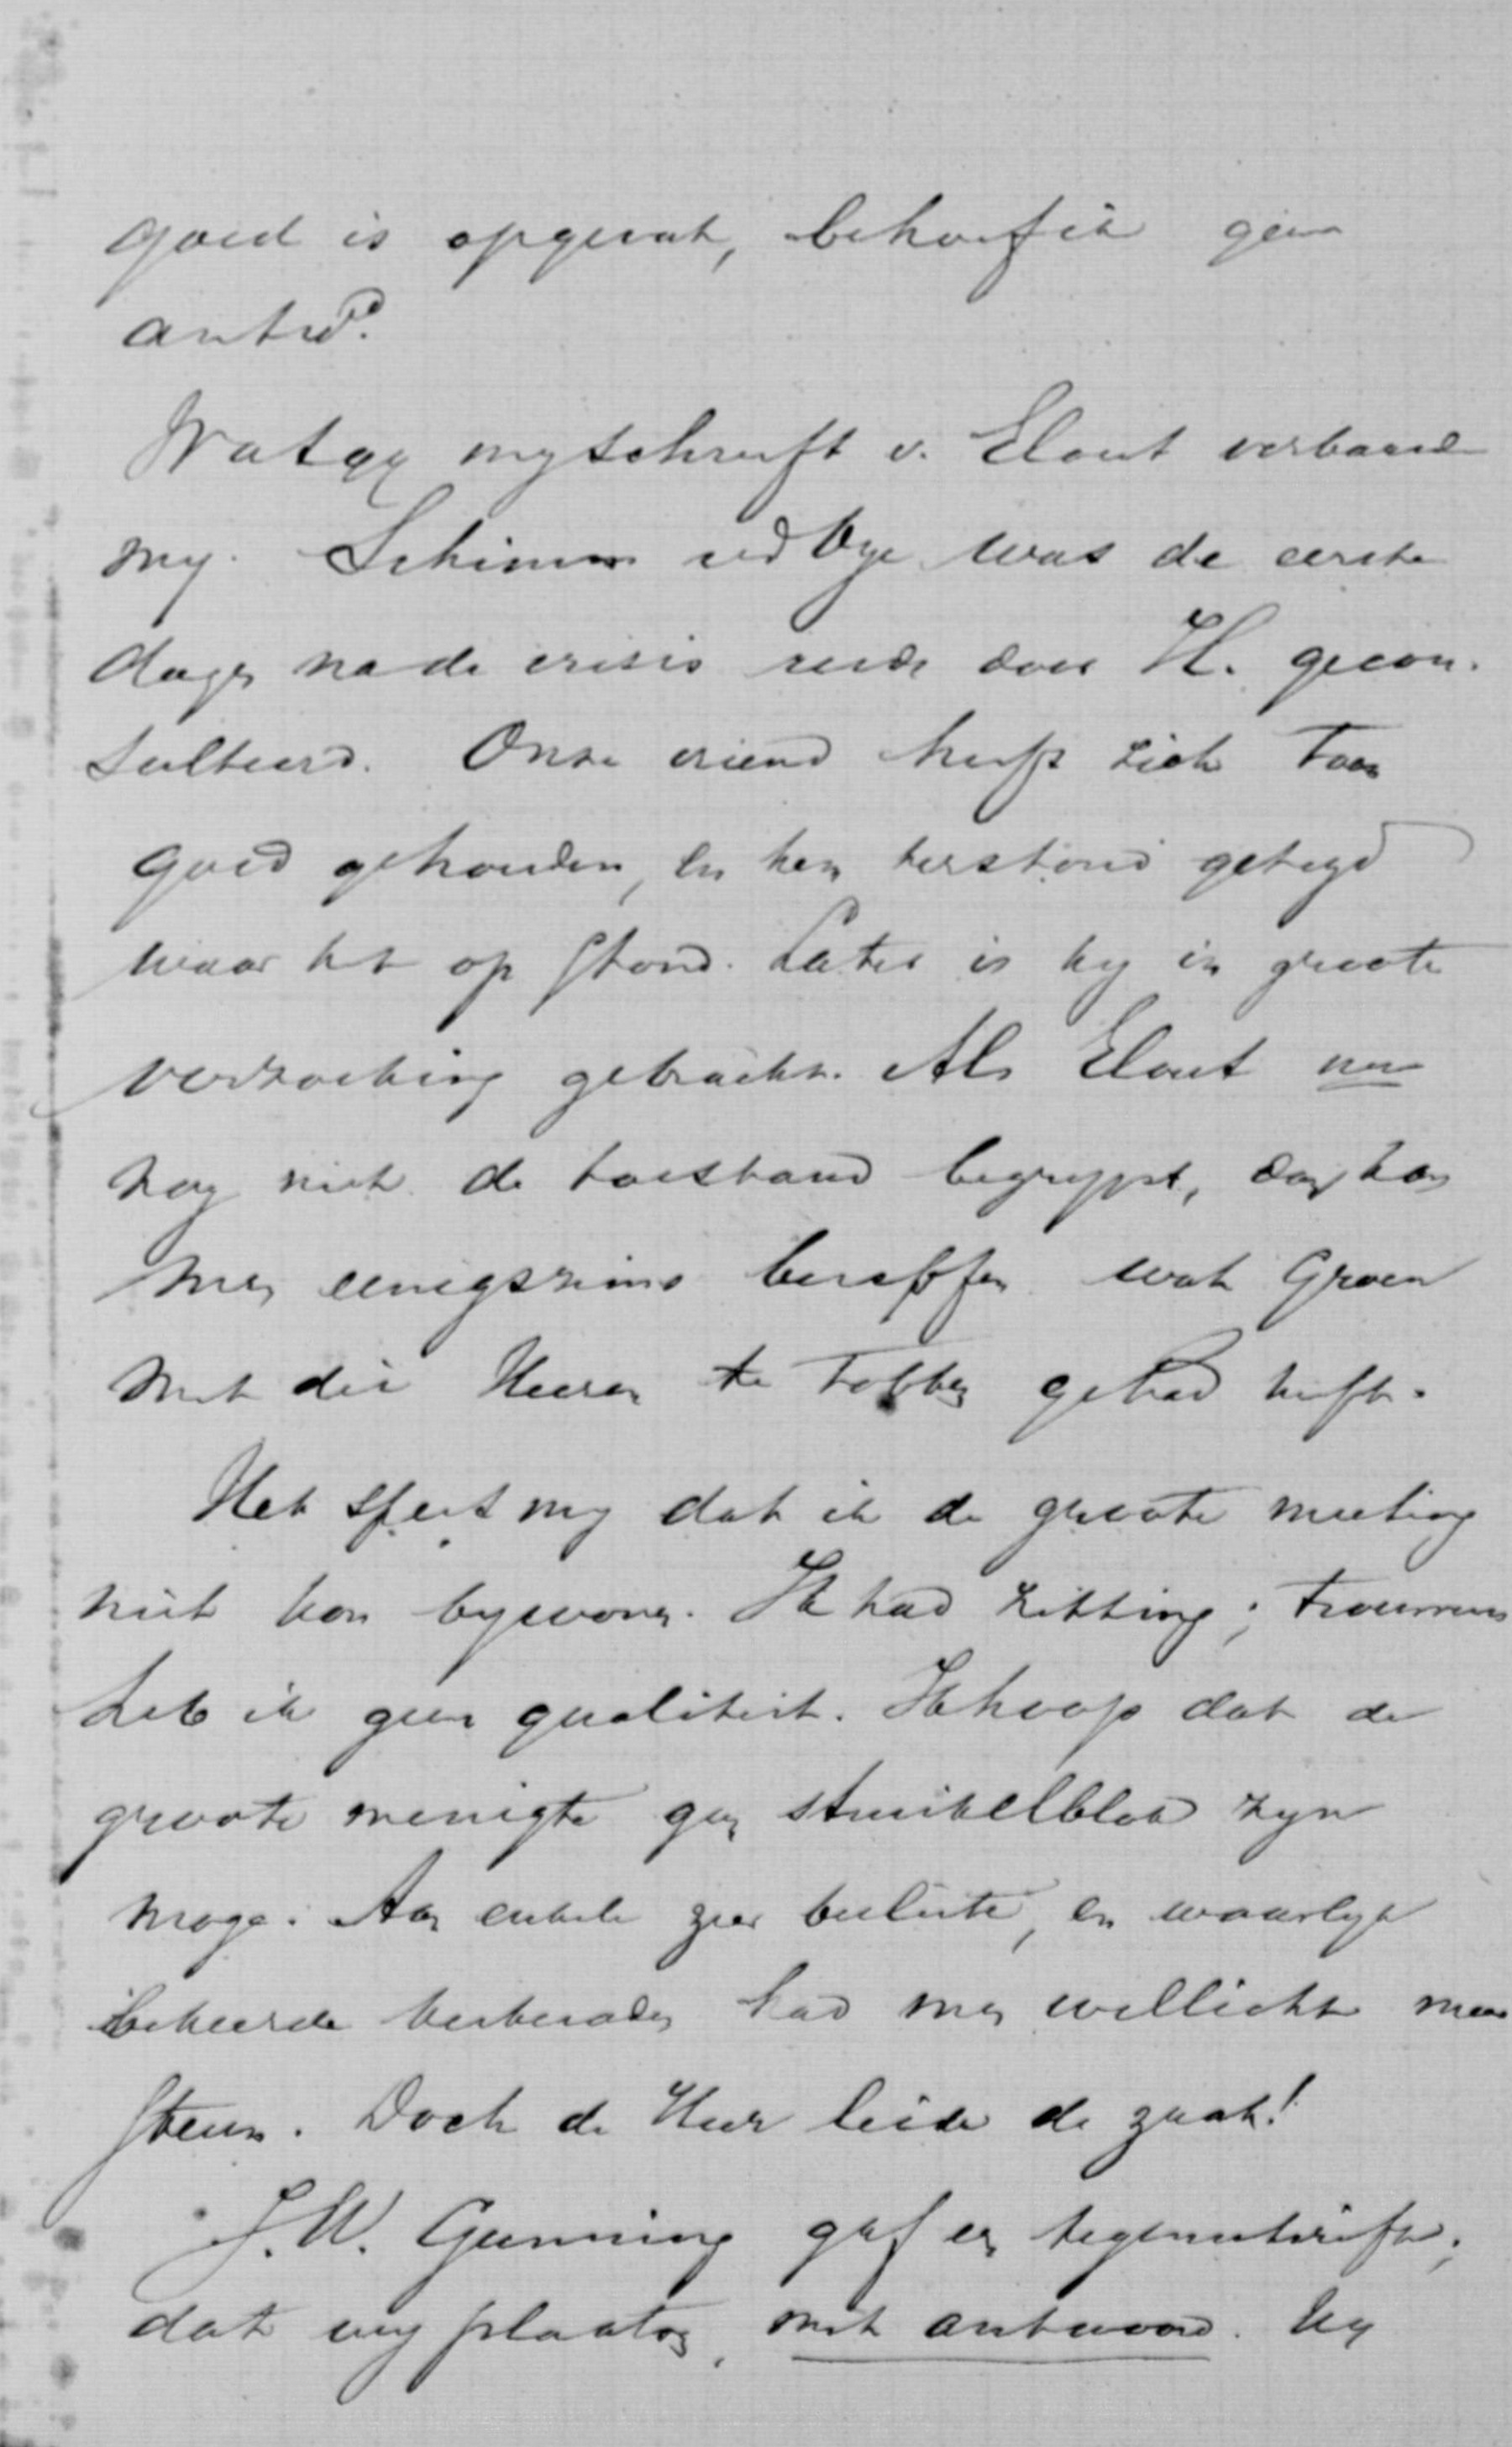 goed is opgevat, behoef ik geen
antwd.
Wat gy my schreeft v. Elout verbaasde
my. Schimm vd Oye was de eerste
dagen na de crisis reeds door H. gecon-
sulteerd. Onze vriend heeft zich toen
goed gehouden, en hen terstond gezegd
waar het op stond. Later is hy in groote
verzoeking gebracht. Als Elout nu
nog niet de toestand begrypt, dan kan
men eenigszins beseffen wat Groen
met die Heeren te tobben gehad heeft.
Het speet my dat ik de groote meeting
niet kon bywonen. Ik had zitting; trouwens
heb ik geen qualiteit. Ik hoop dat de
groote menigte geen struikelblok zyn
moge. Aan enkele zeer besliste, en waarlyk
bekeerde kerkeraden had men wellicht meer
steun. Doch de Heer leide de zaak!
J.W. Gunning gaf een tegenschrift,
dat wy plaatsen, met antwoord. Hy